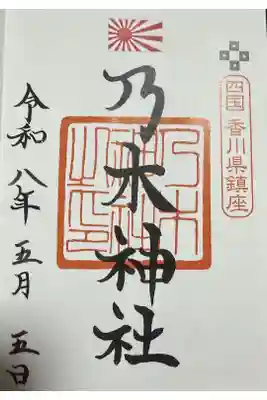 四国 香川県鎮座
乃木神社
令和八年五月五日